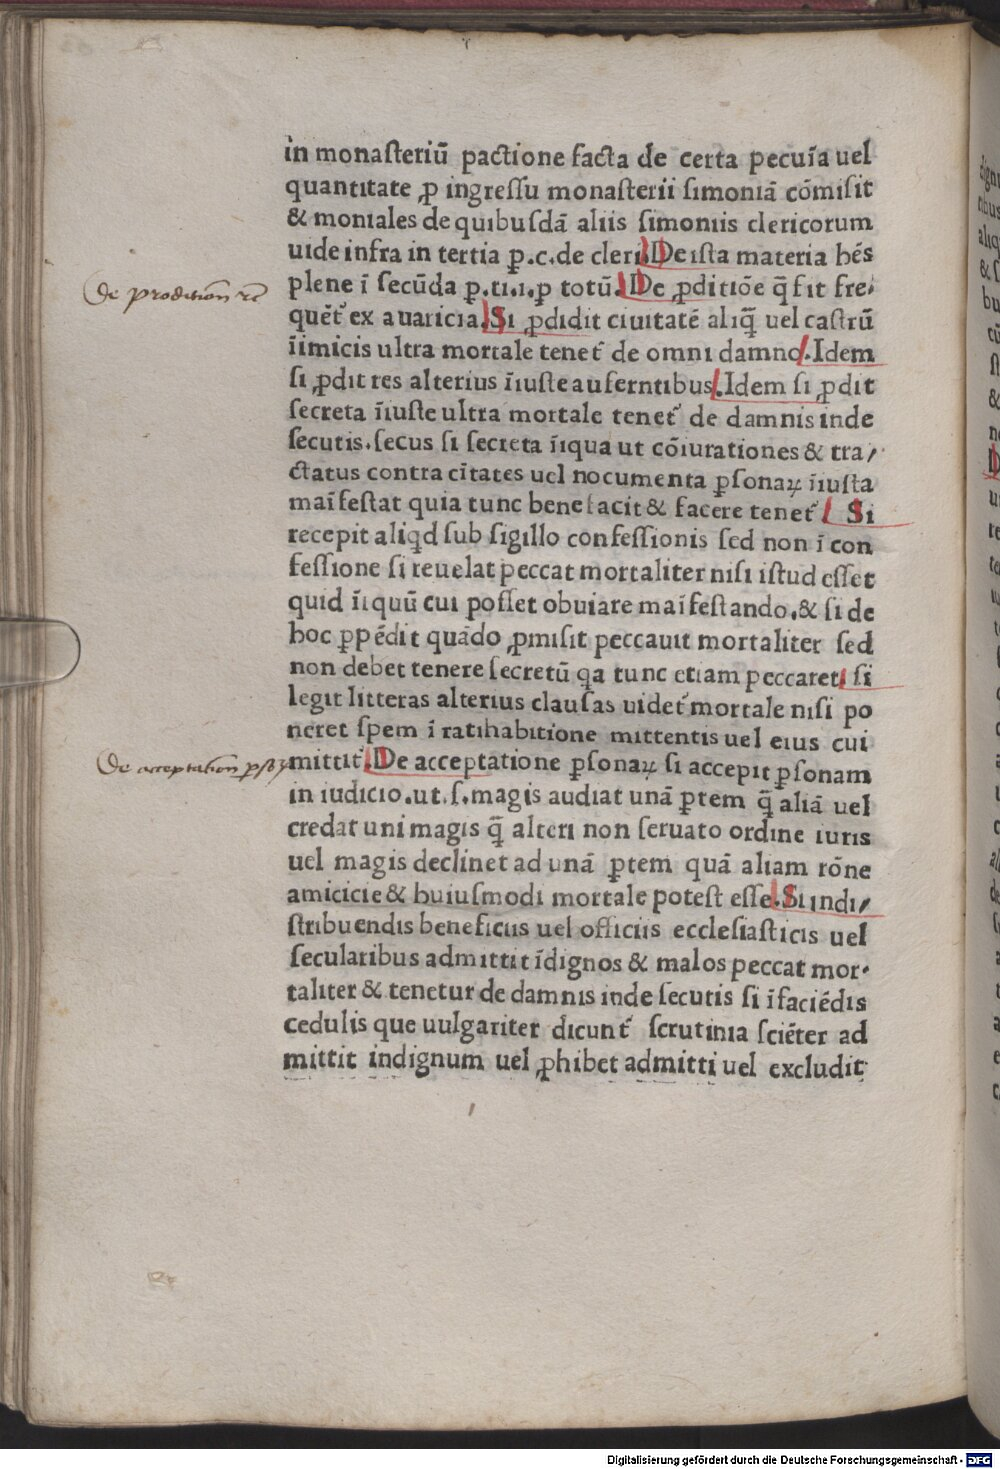 in monaſteriū pactione facta de certa pecuīa uel
quantitate ꝓ ingreſſu monaſterii ſimoniā cōmiſit
& moniales de quibuſdā aliis ſimoniis clericorum
uide infra in tertia p.c.de cleri. De iſta materia hēs
plene ī ſecūda p.ti.i.p totū. De ꝓditiōe q̄ fit fre/
quēt᷑ ex auaricia. Si ꝓdidit ciuitatē aliq̄ uel caſtrū
īimicis ultra mortale tenet᷑ de omni damno. Idem
ſi ꝓdit res alterius īiuſte auferntibus. Idem ſi ꝓdit
ſecreta īiuſte ultra mortale tenet᷑ de damnis inde
ſecutis. ſecus ſi ſecreta īiqua ut cōiurationes & tra/
ctatus contra cītates uel nocumenta ꝑſonaꝝ īiuſta
maīfeſtat quia tunc benefacit & facere tenet᷑ Si
recepit aliqd ſub ſigillo confeſſionis ſed non ī con
feſſione ſi reuelat peccat mortaliter niſi iſtud eſſet
quid īiquū cui poſſet obuiare maīfeſtando. & ſi de
hoc ꝑpēdit quādo ꝓmiſit peccauit mortaliter ſed
non debet tenere ſecretū qa tunc etiam peccaret. ſi
legit litteras alterius clauſas uidet᷑ mortale niſi po
neret ſpem ī ratihabitione mittentis uel eius cui
mittit᷑. De acceptatione ꝑſonaꝝ ſi accepit ꝑſonam
in iudicio.ut.ſ.magis audiat unā ꝑtem q̄ aliā uel
credat uni magis q̄ alteri non ſeruato ordine iuris
uel magis declinet ad unā ꝑtem quā aliam rōne
amicicie & huiuſmodi mortale poteſt eſſe. Si indi/
ſtribuendis beneficiis uel officiis eccleſiaſticis uel
ſecularibus admittit īdignos & malos peccat mor-
taliter & tenetur de damnis inde ſecutis ſi ī faciēdis
cedulis que uulgariter dicunt᷑ ſcrutinia ſciēter ad
mittit indignum uel ꝓhibet admitti uel excludit
De proditiom̄ rē
De acceptatiom̄ pſo
Digitalisierung gefördert durch die Deutsche Forschungsgemeinschaft - DFG